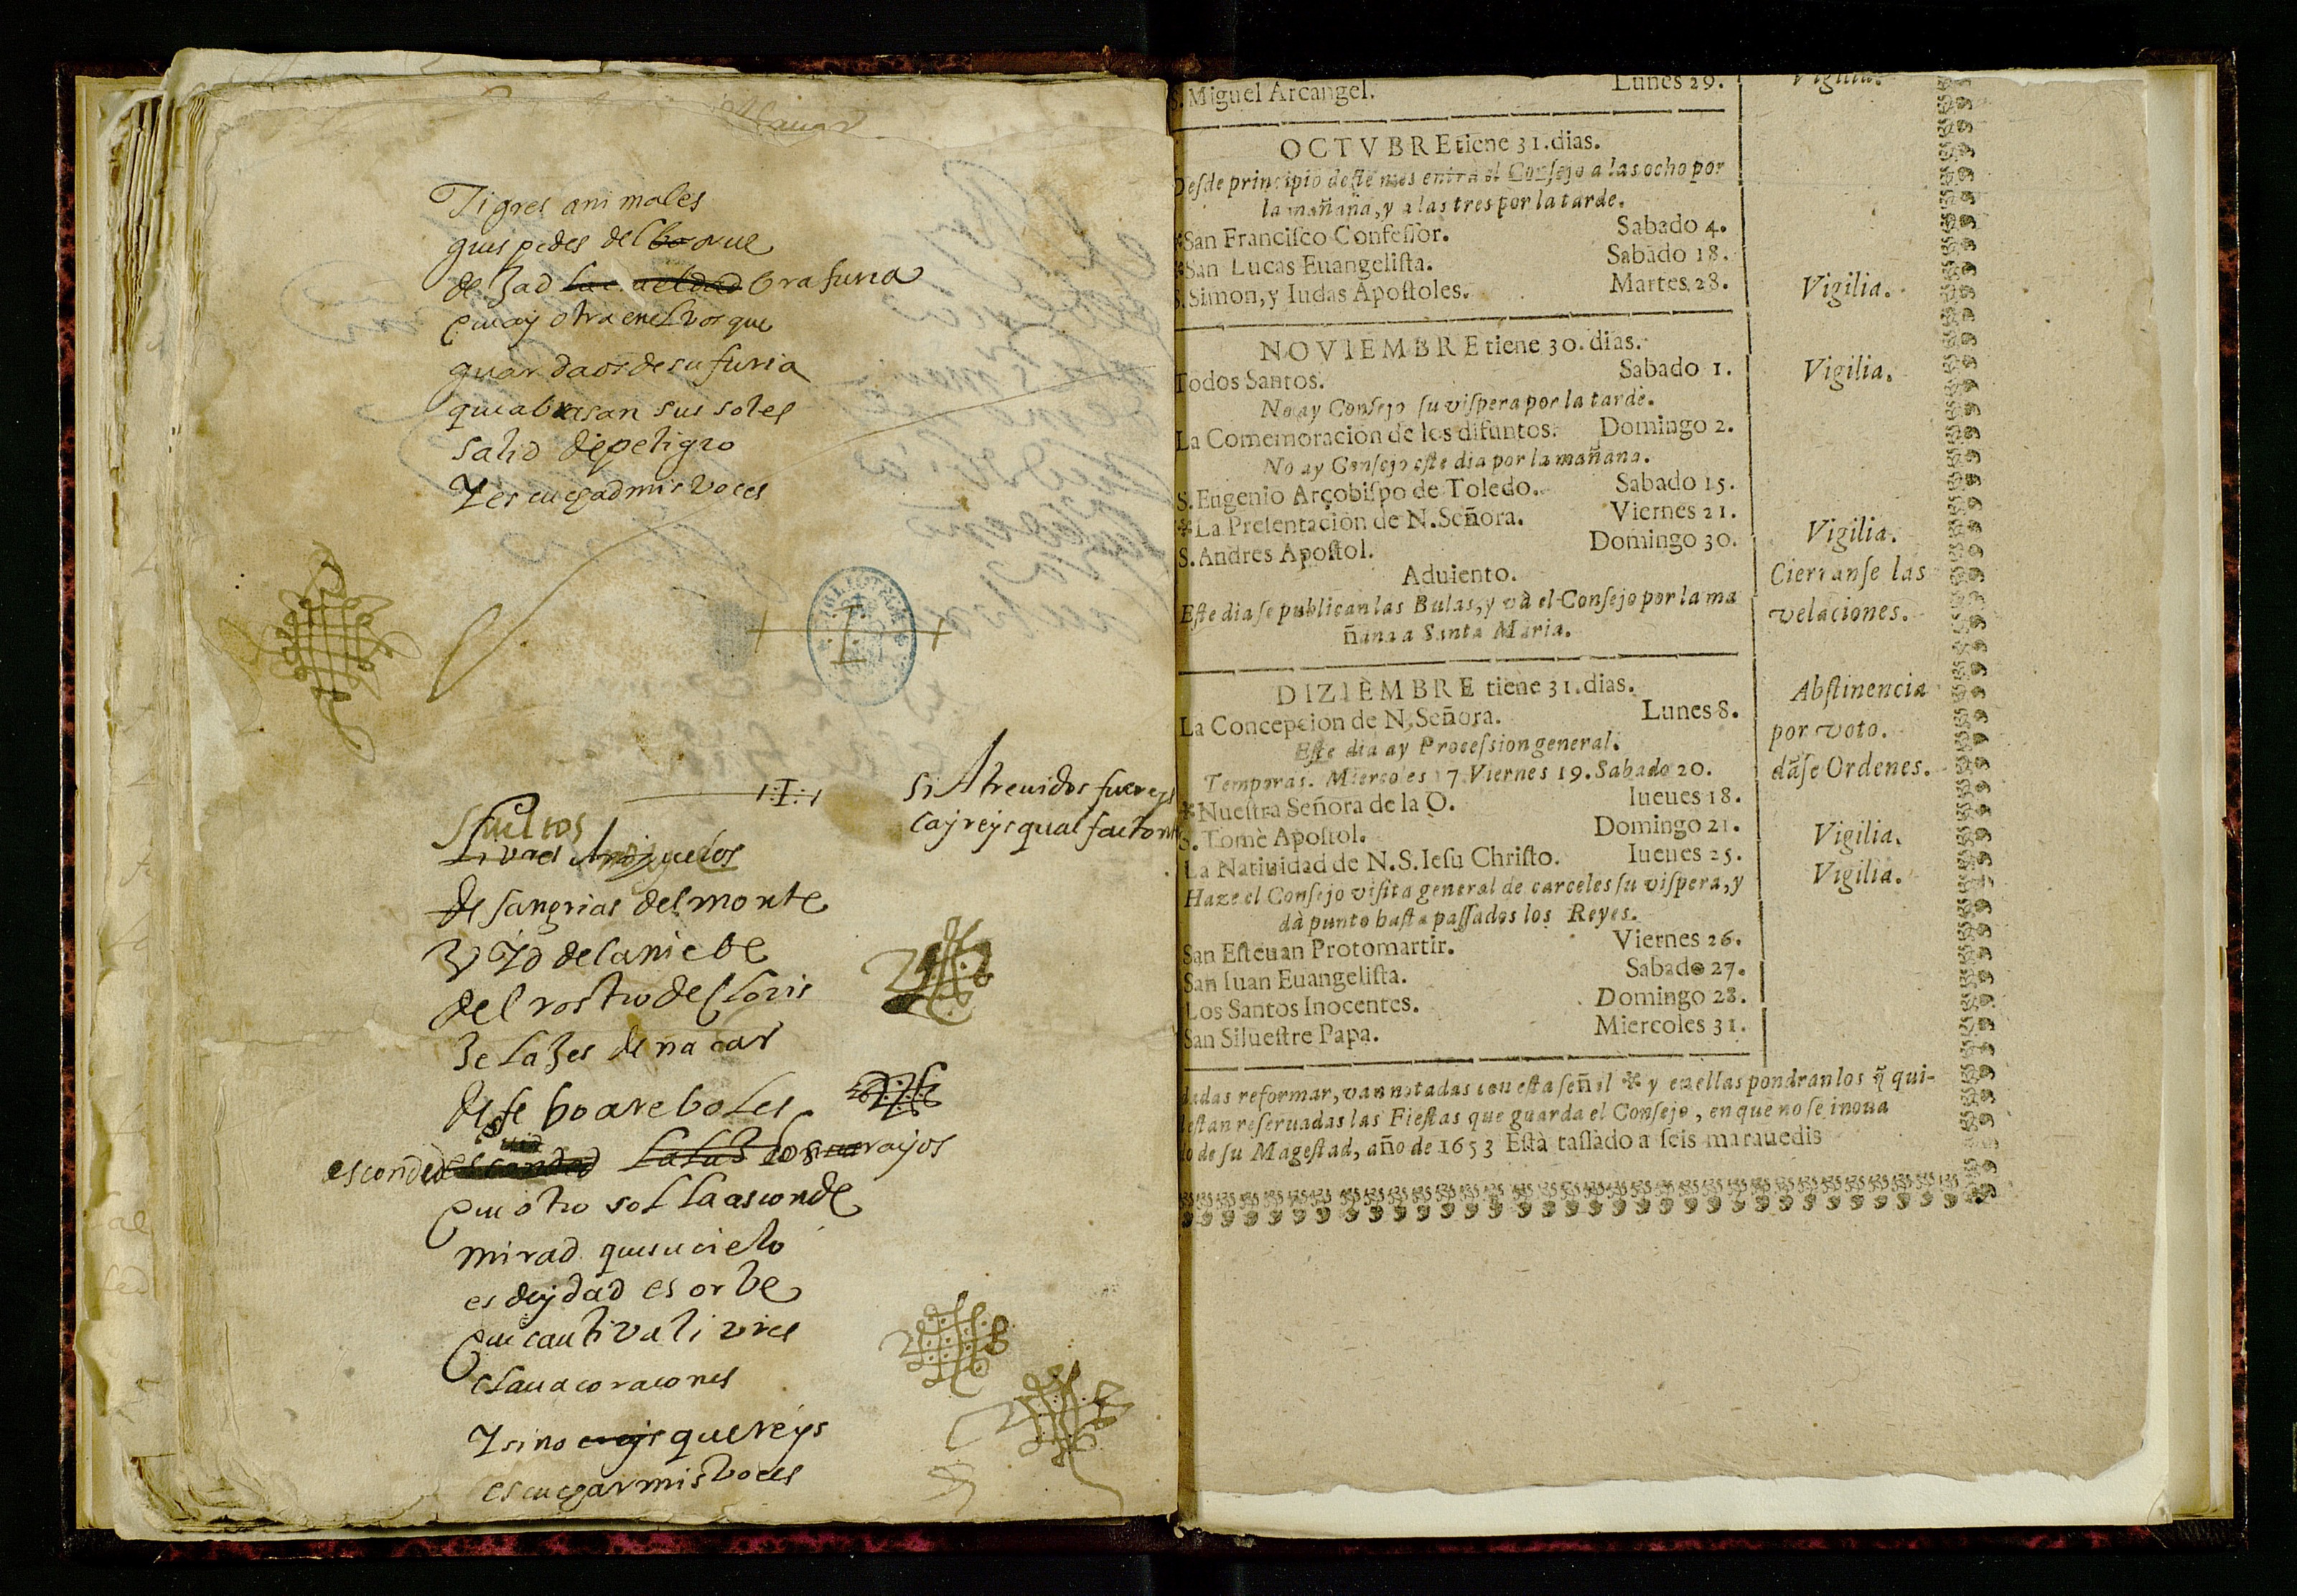 Tigres animales
guespedes del bosque
dejad la crueldad bra furia
que ay otra en el vosque
guardaos de su furia
que abrasan sus soles
salid del peligro
Y escuchad mis voces
Si Atreuidos fuereys
cayreys qual faetonte
Sueltos
Livres Arroyuelos
de sangrias del monte
del rostro de Cloris
de nacar
de se bo areboles
esconded rayos
que otro sol la asconde
mirad que su cielo
es deydad es orbe
que cautiva livres
claua coracones
Y si no quereys
escuchar mis voces
S. Miguel Arcangel. Lunes 29. Vigilia.
OCTVBRE tiene 31. dias.
Desde principio deste mes entra el Consejo a las ocho por
la mañana, y a las tres por la tarde.
*San Francisco Confessor. Sabado 4.
*San Lucas Euangelista. Sabado 18.
S. Simon, y Iudas Apostoles. Martes 28. Vigilia.
NOVIEMBRE tiene 30. dias.
Todos Santos. Sabado 1. Vigilia.
No ay Consejo su vispera por la tarde.
La Comemoracion de los difuntos. Domingo 2.
No ay Consejo este dia por la mañana.
S. Eugenio Arçobispo de Toledo. Sabado 15.
*La Presentacion de N. Señora. Viernes 21.
S. Andres Apostol. Domingo 30. Vigilia.
Aduiento. Cierranse las
velaciones.
Este dia se publican las Bulas, y và el Consejo por la ma
ñana a Santa Maria.
DIZIEMBRE tiene 31. dias.
La Concepcion de N. Señora. Lunes 8. Abstinencia
por voto.
Este dia ay Procession general.
Temporas. Miercoles 17. Viernes 19. Sabado 20. dãse Ordenes.
*Nuestra Señora de la O. Iueues 18.
S. Tomè Apostol. Domingo 21. Vigilia.
La Natiuidad de N. S. Iesu Christo. Iueues 25. Vigilia.
Haze el Consejo visita general de carceles su vispera, y
dà punto hasta passados los Reyes.
San Esteuan Protomartir. Viernes 26.
San Iuan Euangelista. Sabado 27.
Los Santos Inocentes. Domingo 28.
San Siluestre Papa. Miercoles 31.
dadas reformar, van notadas con esta señal * y en ellas pondran los q̃ qui-
estan reseruadas las Fiestas que guarda el Consejo, en que no se inoua
o de su Magestad, año de 1653 Està tassado a seis marauedis